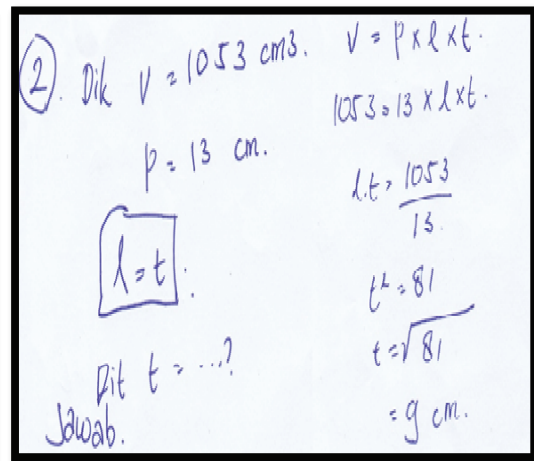 2. Dik V = 1053 cm3.
p = 13 cm.
l = t.
Dit t = ...?
Jawab.
V = p x l x t.
1053 = 13 x l x t.
l.t = 1053
13
t² = 81
t = √81
= 9 cm.